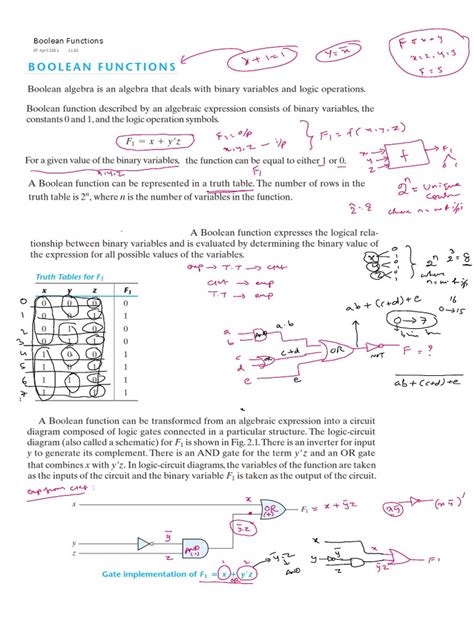 Boolean Functions
07 April 2021 11:02
BOOLEAN FUNCTIONS
x + 1 = 1
y = x̅
F = x + y
x = 2, y = 3
F = 5
Boolean algebra is an algebra that deals with binary variables and logic operations.
Boolean function described by an algebraic expression consists of binary variables, the
constants 0 and 1, and the logic operation symbols.
F₁ = x + y'z
F₁ = o/p
x, y, z - i/p
F₁ = f(x, y, z)
For a given value of the binary variables, the function can be equal to either 1 or 0.
x, y, z
F₁
A Boolean function can be represented in a truth table. The number of rows in the
truth table is 2ⁿ, where n is the number of variables in the function.
2ⁿ = unique
2³ = 8
where n = # i/p
A Boolean function expresses the logical rela-
tionship between binary variables and is evaluated by determining the binary value of
the expression for all possible values of the variables.
exp → T.T → ckt
ckt → exp
2ⁿ 2³ = 8
when
n = # i/p
Truth Tables for F₁
x y z F₁
0 0 0 0 0
1 0 0 1 1
2 0 1 0 0
3 0 1 1 0
4 1 0 0 1
5 1 0 1 1
6 1 1 0 1
7 1 1 1 1
a
b
a·b
c
d
c+d
e
OR
NOT
F = ?
ab + (c+d) + e
0 → 7
16
0 → 15
ab + (c+d) + e
A Boolean function can be transformed from an algebraic expression into a circuit
diagram composed of logic gates connected in a particular structure. The logic-circuit
diagram (also called a schematic) for F₁ is shown in Fig. 2.1. There is an inverter for input
y to generate its complement. There is an AND gate for the term y'z and an OR gate
that combines x with y'z. In logic-circuit diagrams, the variables of the function are taken
as the inputs of the circuit and the binary variable F₁ is taken as the output of the circuit.
exp from ckt:
x
OR
(+)
F₁ = x + y̅z
y̅·z
y
z
y̅
AND
(·)
x
y
z
F₁
y̅·z
AND
Gate implementation of F₁ = x + y'z